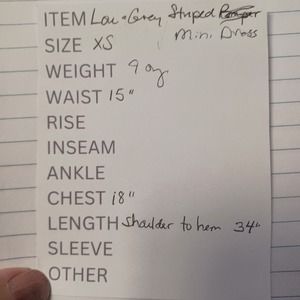 ITEM Lou & Grey Striped
Mini Dress
SIZE XS
WEIGHT 9 oz
WAIST 15"
RISE
INSEAM
ANKLE
CHEST 18"
LENGTH Shoulder to hem 34"
SLEEVE
OTHER